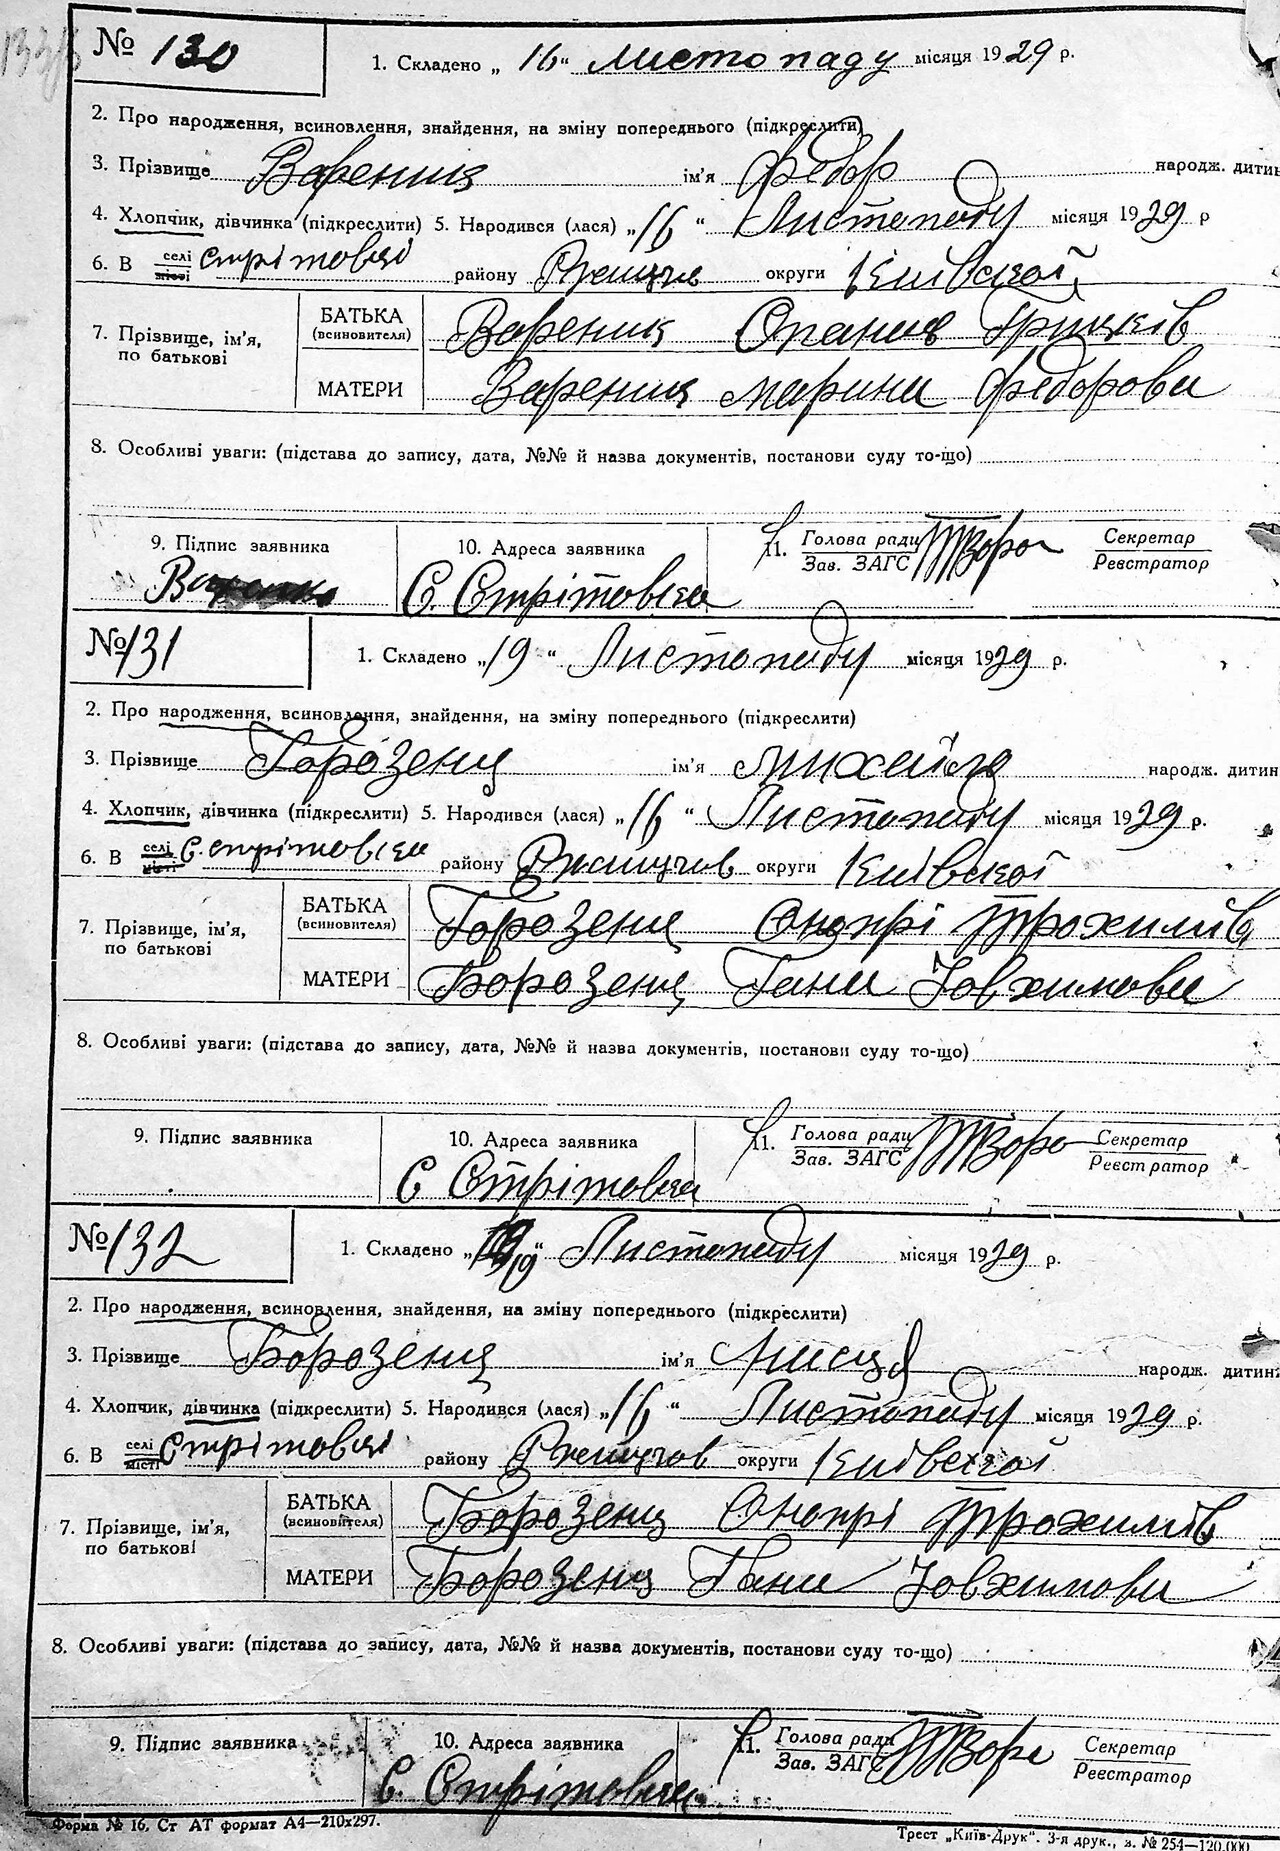 № 130
1. Складено „16“ Листопаду місяця 1929 р.
2. Про народження, всиновлення, знайдення, на зміну попереднього (підкреслити)
3. Прізвище Вареник ім'я Федор народж. дитин
4. Хлопчик, дівчинка (підкреслити) 5. Народився (лася) „16“ Листопаду місяця 1929 р
6. В селі місті Стрітовці району Ржищів округи Київской
7. Прізвище, ім'я, по батькові
БАТЬКА (всиновителя) Вареник Опанас Грицків
МАТЕРИ Вареник Марина Федорова
8. Особливі уваги: (підстава до запису, дата, №№ й назва документів, постанови суду то-що)
9. Підпис заявника
10. Адреса заявника
11. Голова ради
Зав. ЗАГС
Секретар
Реєстратор
С. Стрітовка
№ 131
1. Складено „19“ Листопаду місяця 1929 р.
2. Про народження, всиновлення, знайдення, на зміну попереднього (підкреслити)
3. Прізвище Борозенц ім'я Михайло народж. дитин
4. Хлопчик, дівчинка (підкреслити) 5. Народився (лася) „16“ Листопаду місяця 1929 р.
6. В селі місті С. Стрітовка району Ржищів округи Київской
7. Прізвище, ім'я, по батькові
БАТЬКА (всиновителя) Борозенц Онопрі Трохимів
МАТЕРИ Борозенц Гана Йовхимова
8. Особливі уваги: (підстава до запису, дата, №№ й назва документів, постанови суду то-що)
9. Підпис заявника
10. Адреса заявника
11. Голова ради
Зав. ЗАГС
Секретар
Реєстратор
С Стрітовка
№ 132
1. Складено „19“ Листопаду місяця 1929 р.
2. Про народження, всиновлення, знайдення, на зміну попереднього (підкреслити)
3. Прізвище Борозенц ім'я народж. дитин
4. Хлопчик, дівчинка (підкреслити) 5. Народився (лася) „16“ Листопаду місяця 1929 р.
6. В селі місті Стрітовці району Ржищов округи Київской
7. Прізвище, ім'я, по батькові
БАТЬКА (всиновителя) Борозенц Онопрі Трохимів
МАТЕРИ Борозенц Гана Йовхимова
8. Особливі уваги: (підстава до запису, дата, №№ й назва документів, постанови суду то-що)
9. Підпис заявника
10. Адреса заявника
11. Голова ради
Зав. ЗАГС
Секретар
Реєстратор
С. Стрітовка
Форма № 16. Ст АТ формат А4—210х297.
Трест „Київ-Друк“. 3-я друк., з. № 254—120.000